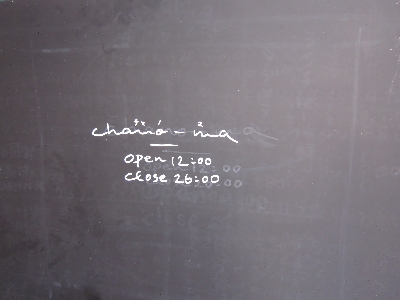 chano-ma
open 12:00
close 26:00